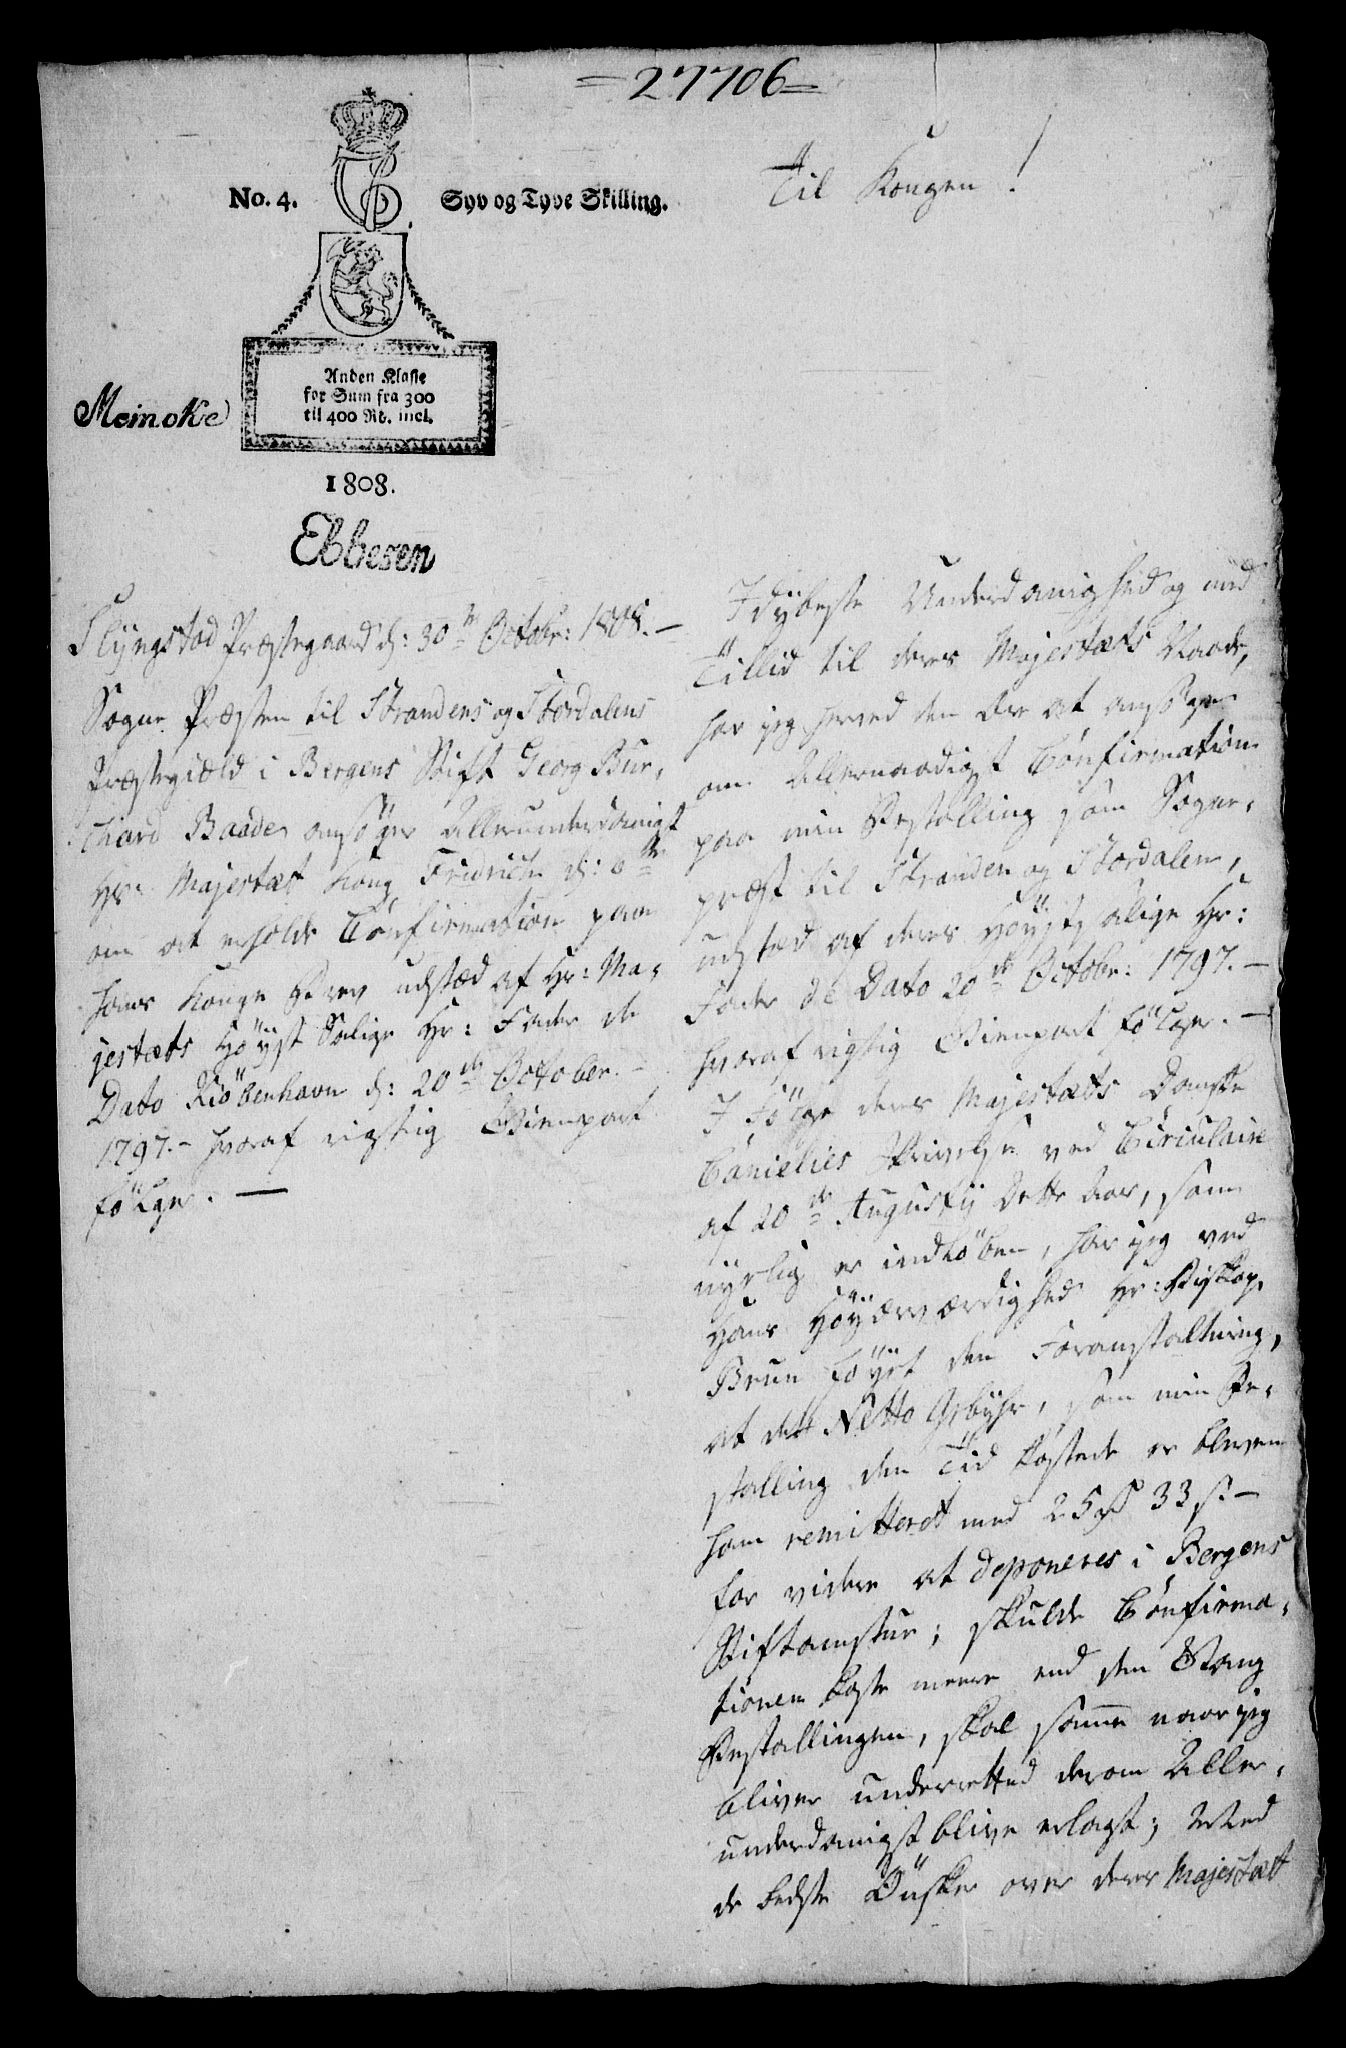 =27706=
No. 4.
Syv og Tyve Skilling.
Anden Klasse
for Sum fra 300
til 400 Rd. incl.
Meincke
1808.
Ebbesen
Slyngstad Præstegaard d: 30te Octobr: 1808. —
Sogne Præsten til Strandens og Stordalens
Præstegiæld i Bergens Stift Georg Bur,
chard Baade ansøger Allerunderdanigst
Hs: Majestæt Kong Fridrich d: 6te
om at erholde Confirmation paa
hans Konge Brev udstæd af Hs: Ma,
jestæts Høyst Salige Hr: Fader de
Dato Kiøbenhavn d: 20de October. —
1797. — hvoraf rigtig Gienpart
følger. —
Til Kongen!
I dybeste Underdanighed og med
Tillid til deres Majestæts Naade,
har jeg herved den Ære at ansøge
om Allernaadigst Confirmation
paa min Bestalling som Sogne,
præst til Stranden og Stordalen,
udstæd af deres Høyst salige Hr:
Fader de Dato 20de Octobr: 1797. —
hvoraf rigtig Gienpart følger. —
I Følge deres Majestæts Danske
Cancelies Skrivelse ved Circulaire
af 20de Augustii dette Aar, som
nyelig er indløben, har jeg ved
Hans Høyærværdighed Hr: Biskop
Brun føyet den Foranstaltning,
at det Netto Gebyhr, som min Be,
stalling den Tid kostede er bleven
ham remitteret med 25 rd 33 s. —
for videre at deponeres i Bergens
Stiftamstue; skulde Confirma,
tionen koste meere end den Gang
Bestallingen, skal samme naar jeg
bliver underretted derom Aller,
underdanigst blive erlagt; Med
de bedste Ønsker over deres Majestæt